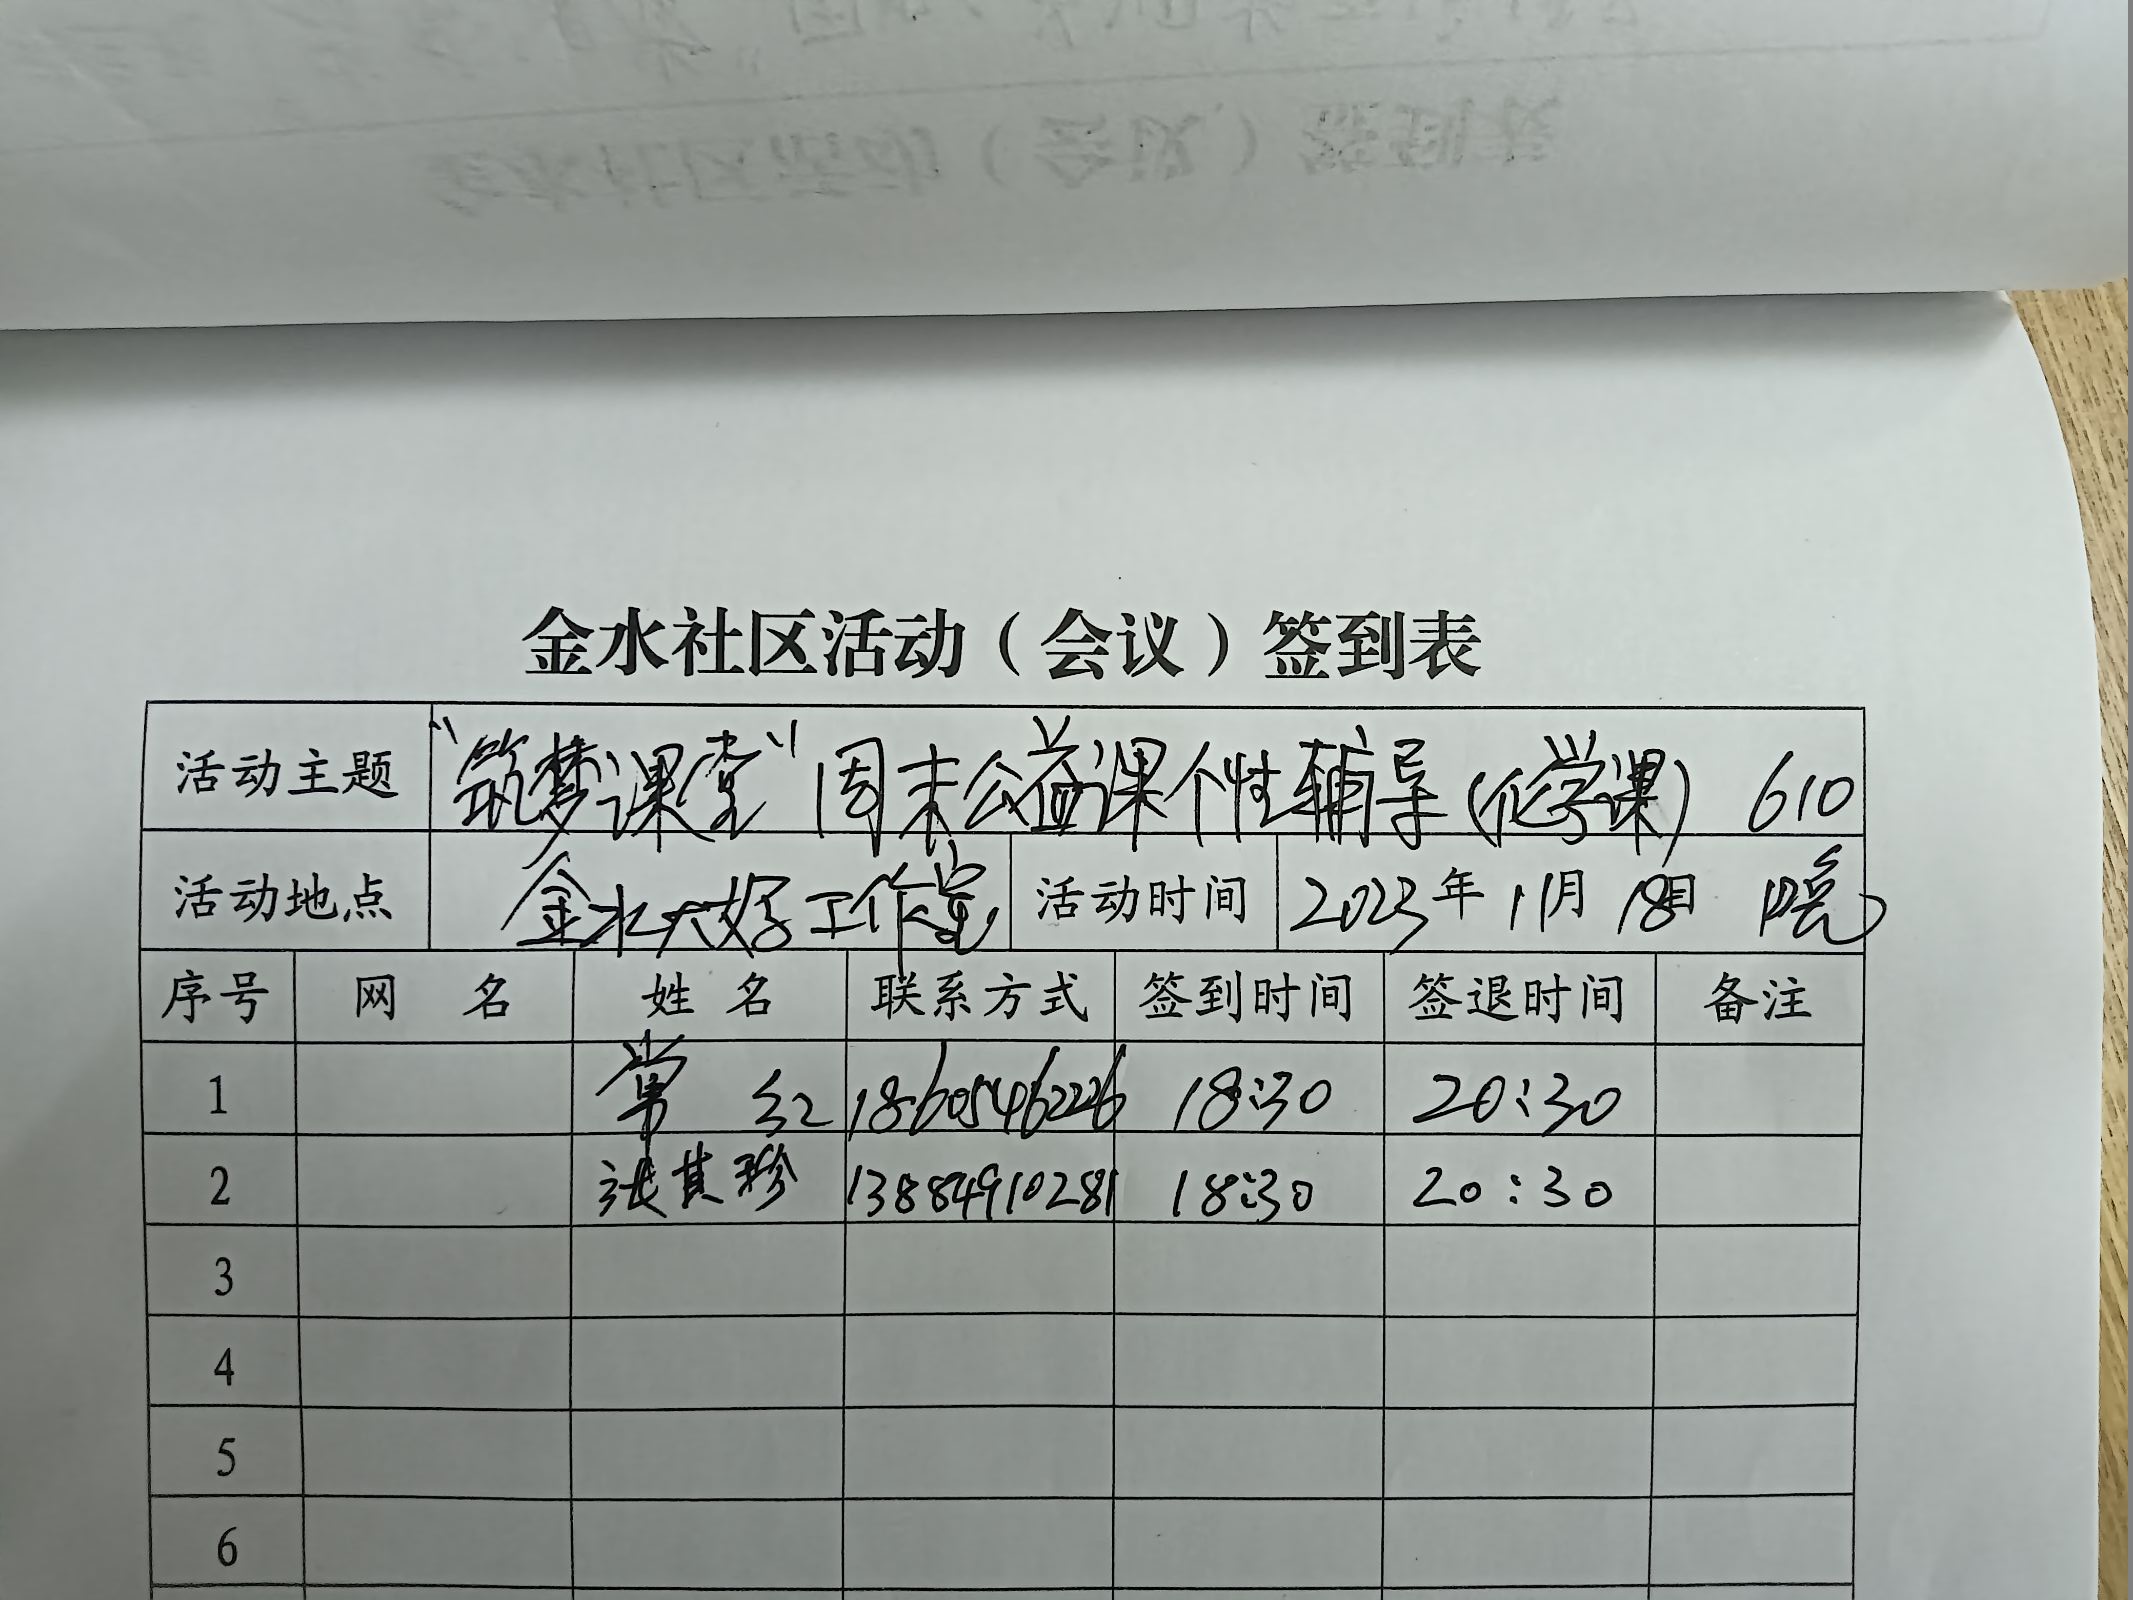 金水社区活动（会议）签到表
活动主题 “筑梦课堂”周末公益课个性辅导(化学课) 610
活动地点 金水大好工作室 活动时间 2023年11月18日 晚
序号 网 名 姓 名 联系方式 签到时间 签退时间 备注
1 常 红 18605462226 18:30 20:30
2 张其珍 13884910281 18:30 20:30
3
4
5
6